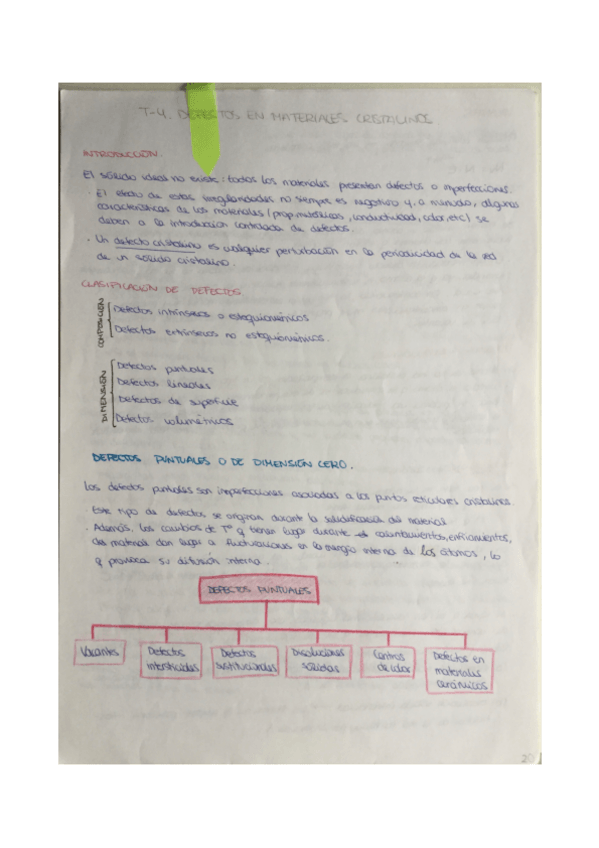 T-4. DEFECTOS EN MATERIALES CRISTALINOS
INTRODUCCIÓN.
El sólido ideal no existe: todos los materiales presentan defectos o imperfecciones.
· El efecto de estas irregularidades no siempre es negativo y, a menudo, algunas
características de los materiales (prop. metálicas, conductividad, color, etc) se
deben a la introducción controlada de defectos.
· Un defecto cristalino es cualquier perturbación en la periodicidad de la red
de un sólido cristalino.
CLASIFICACIÓN DE DEFECTOS
COMPOSICIÓN
Defectos intrínsecos o estequiométricos
Defectos extrínsecos no estequiométricos.
DIMENSIÓN
Defectos puntuales
Defectos lineales
Defectos de superficie
Defectos volumétricos
DEFECTOS PUNTUALES O DE DIMENSIÓN CERO.
Los defectos puntuales son imperfecciones asociadas a los puntos reticulares cristalinos.
· Este tipo de defectos se originan durante la solidificación del material.
· Además, los cambios de Tª q tienen lugar durante el calentamientos, enfriamientos,
del material dan lugar a fluctuaciones en la energía interna de los átomos, lo
q provoca su difusión interna.
DEFECTOS PUNTUALES
Vacantes
Defectos intersticiales
Defectos sustitucionales
Disoluciones sólidas
Centros de color
Defectos en materiales cerámicos
20